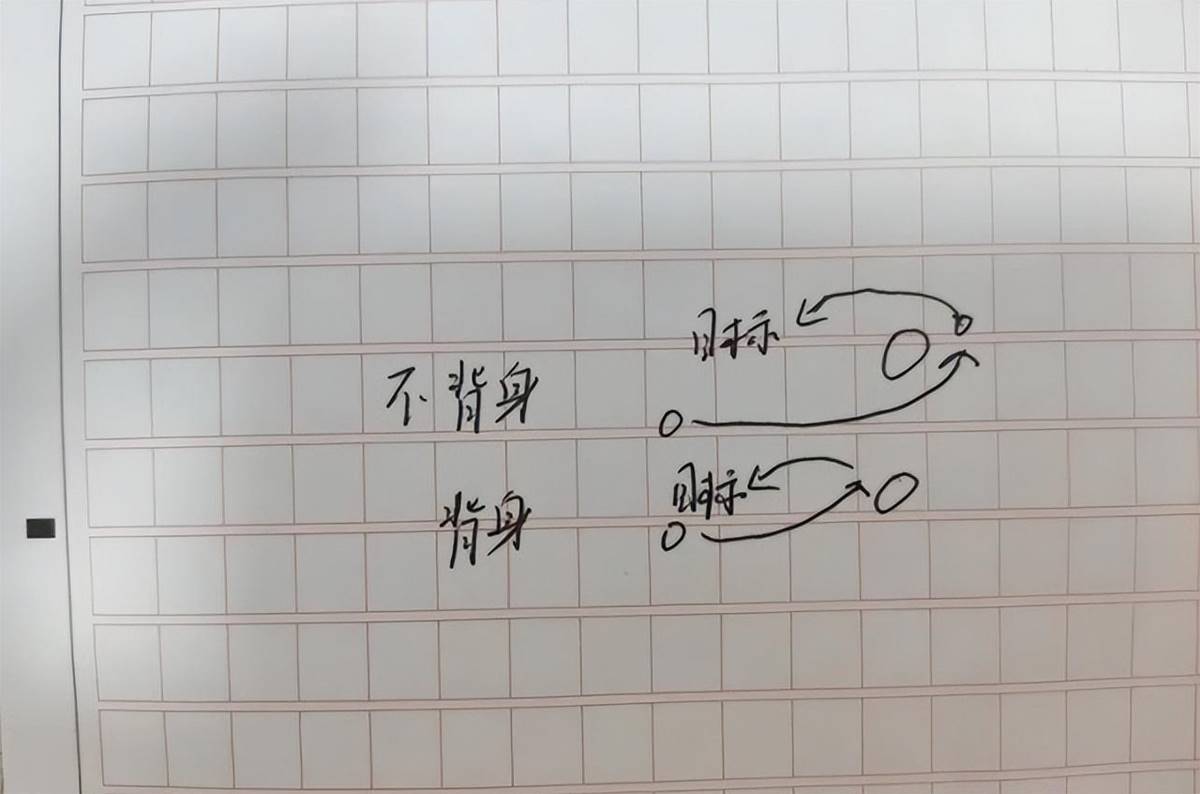 目标
不背身
目标
背身